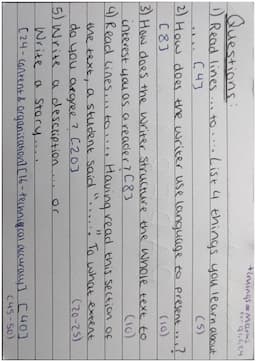 timings = marks
Questions:
1) Read lines ... to .... List 4 things you learn about
..... [4]
(5)
2) How does the writer use language to present ...?
[8]
(10)
3) How does the writer structure the whole text to
interest you as a reader? [8]
(10)
4) Read lines ... to .... Having read this section of
the text, a student said "......" To what extent
do you agree? [20]
(20-25)
5) Write a desciption ... or
Write a story ....
[24 - content & organisation] [16 - technical accuracy] [40]
(45-50)